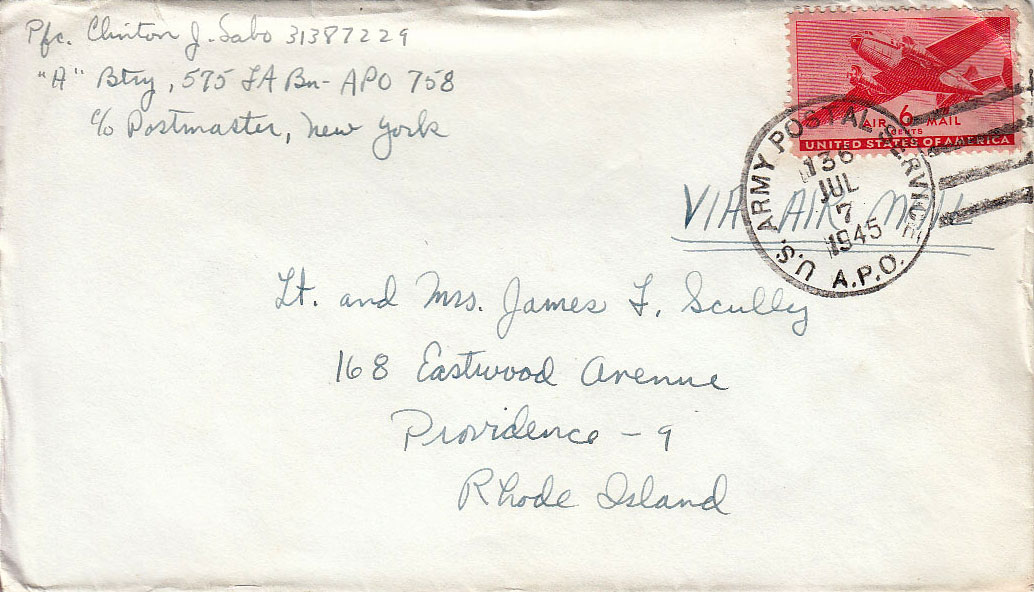 Pfc. Clinton J. Sabo 31387229
"A" Btry, 575 FA Bn - APO 758
c/o Postmaster, New York
AIR 6 MAIL
CENTS
UNITED STATES OF AMERICA
U.S. ARMY POSTAL SERVICE
136
JUL
7
1945
A.P.O.
VIA AIR MAIL
Lt. and Mrs. James F. Scully
168 Eastwood Avenue
Providence - 9
Rhode Island